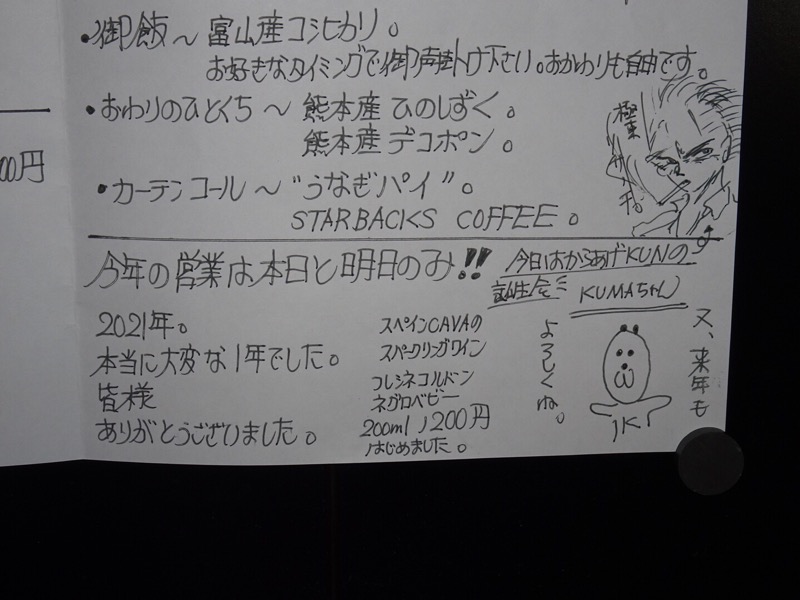 ・御飯～富山産コシヒカリ。
お好きなタイミングで御声掛け下さい。おかわりも自由です。
・おわりのひとくち～熊本産ひのしずく。
熊本産デコポン。
・カーテンコール～"うなぎパイ"。
STARBACKS COFFEE。
00円
今年の営業は、本日と明日のみ!!
今日はからあげKUNの
誕生会
KUMAちゃん
2021年。
本当に大変な1年でした。
皆様
ありがとうございました。
スペインCAVAの
スパークリングワイン
フレシネコルドン
ネグロベビー
200ml 1,200円
はじめました。
又、来年も
よろしくね。